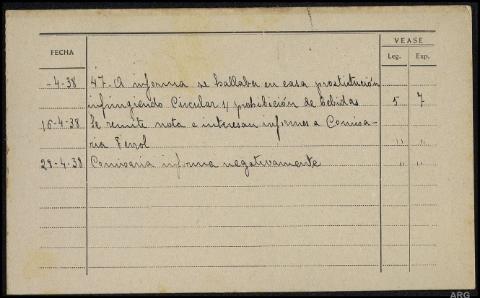 VEASE
FECHA
Leg. Exp.
-4-38 47. A informa se hallaba en casa prostitución
infringiendo Circular y prohibición de bebidas 5 7
16-4-38 Se remite nota e interesan informes a Comisa-
ria Ferrol " "
29-4-38 Comisaria informa negativamente " "
ARG